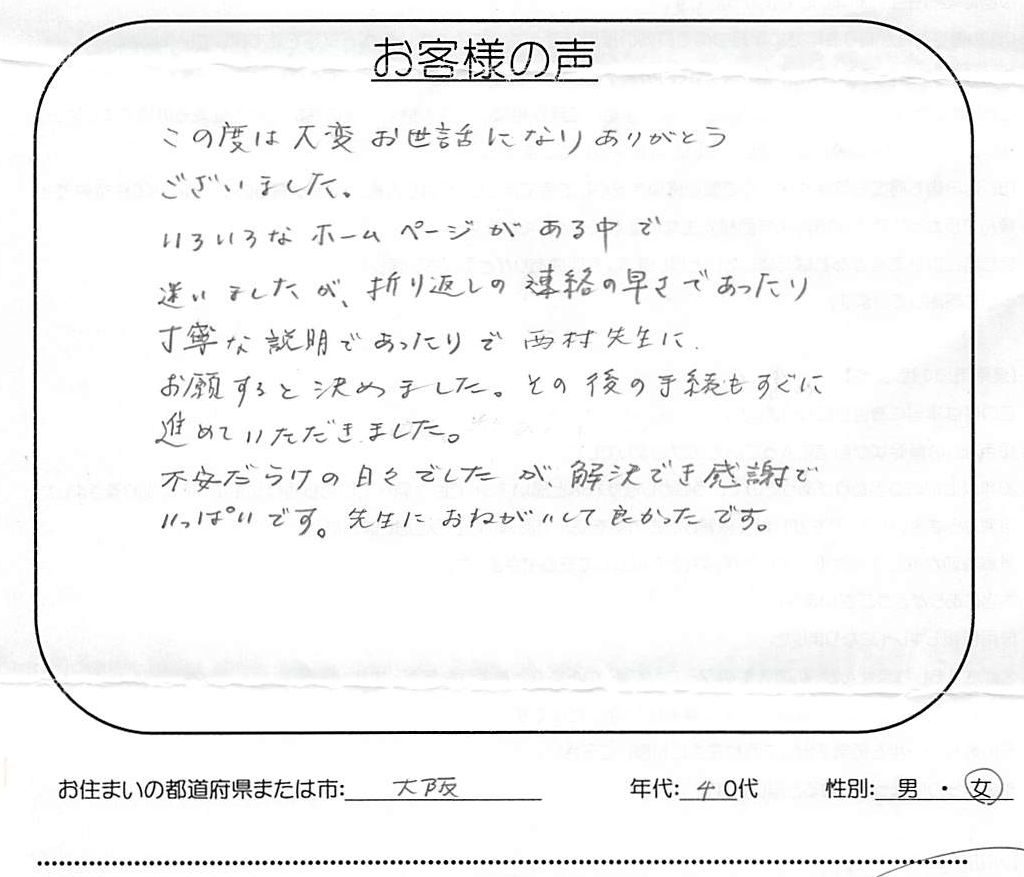 お客様の声
この度は大変お世話になりありがとう
ございました。
いろいろなホームページがある中で
迷いましたが、折り返しの連絡の早さであったり
丁寧な説明であったりで西村先生に
お願すると決めました。その後の手続もすぐに
進めていただきました。
不安だらけの日々でしたが解決でき感謝で
いっぱいです。先生におねがいして良かったです。
お住まいの都道府県または市:大阪 年代:40代 性別:男・女